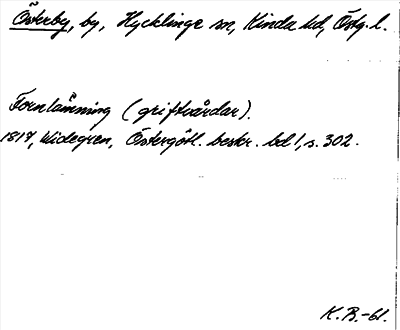 Österby, by, Hycklinge sn, Kinda hd, Östg. l.
Fornlämning (griftvårdar).
1817, Widegren, Östergötl. beskr. bd 1, s. 302.
K. B. -61.